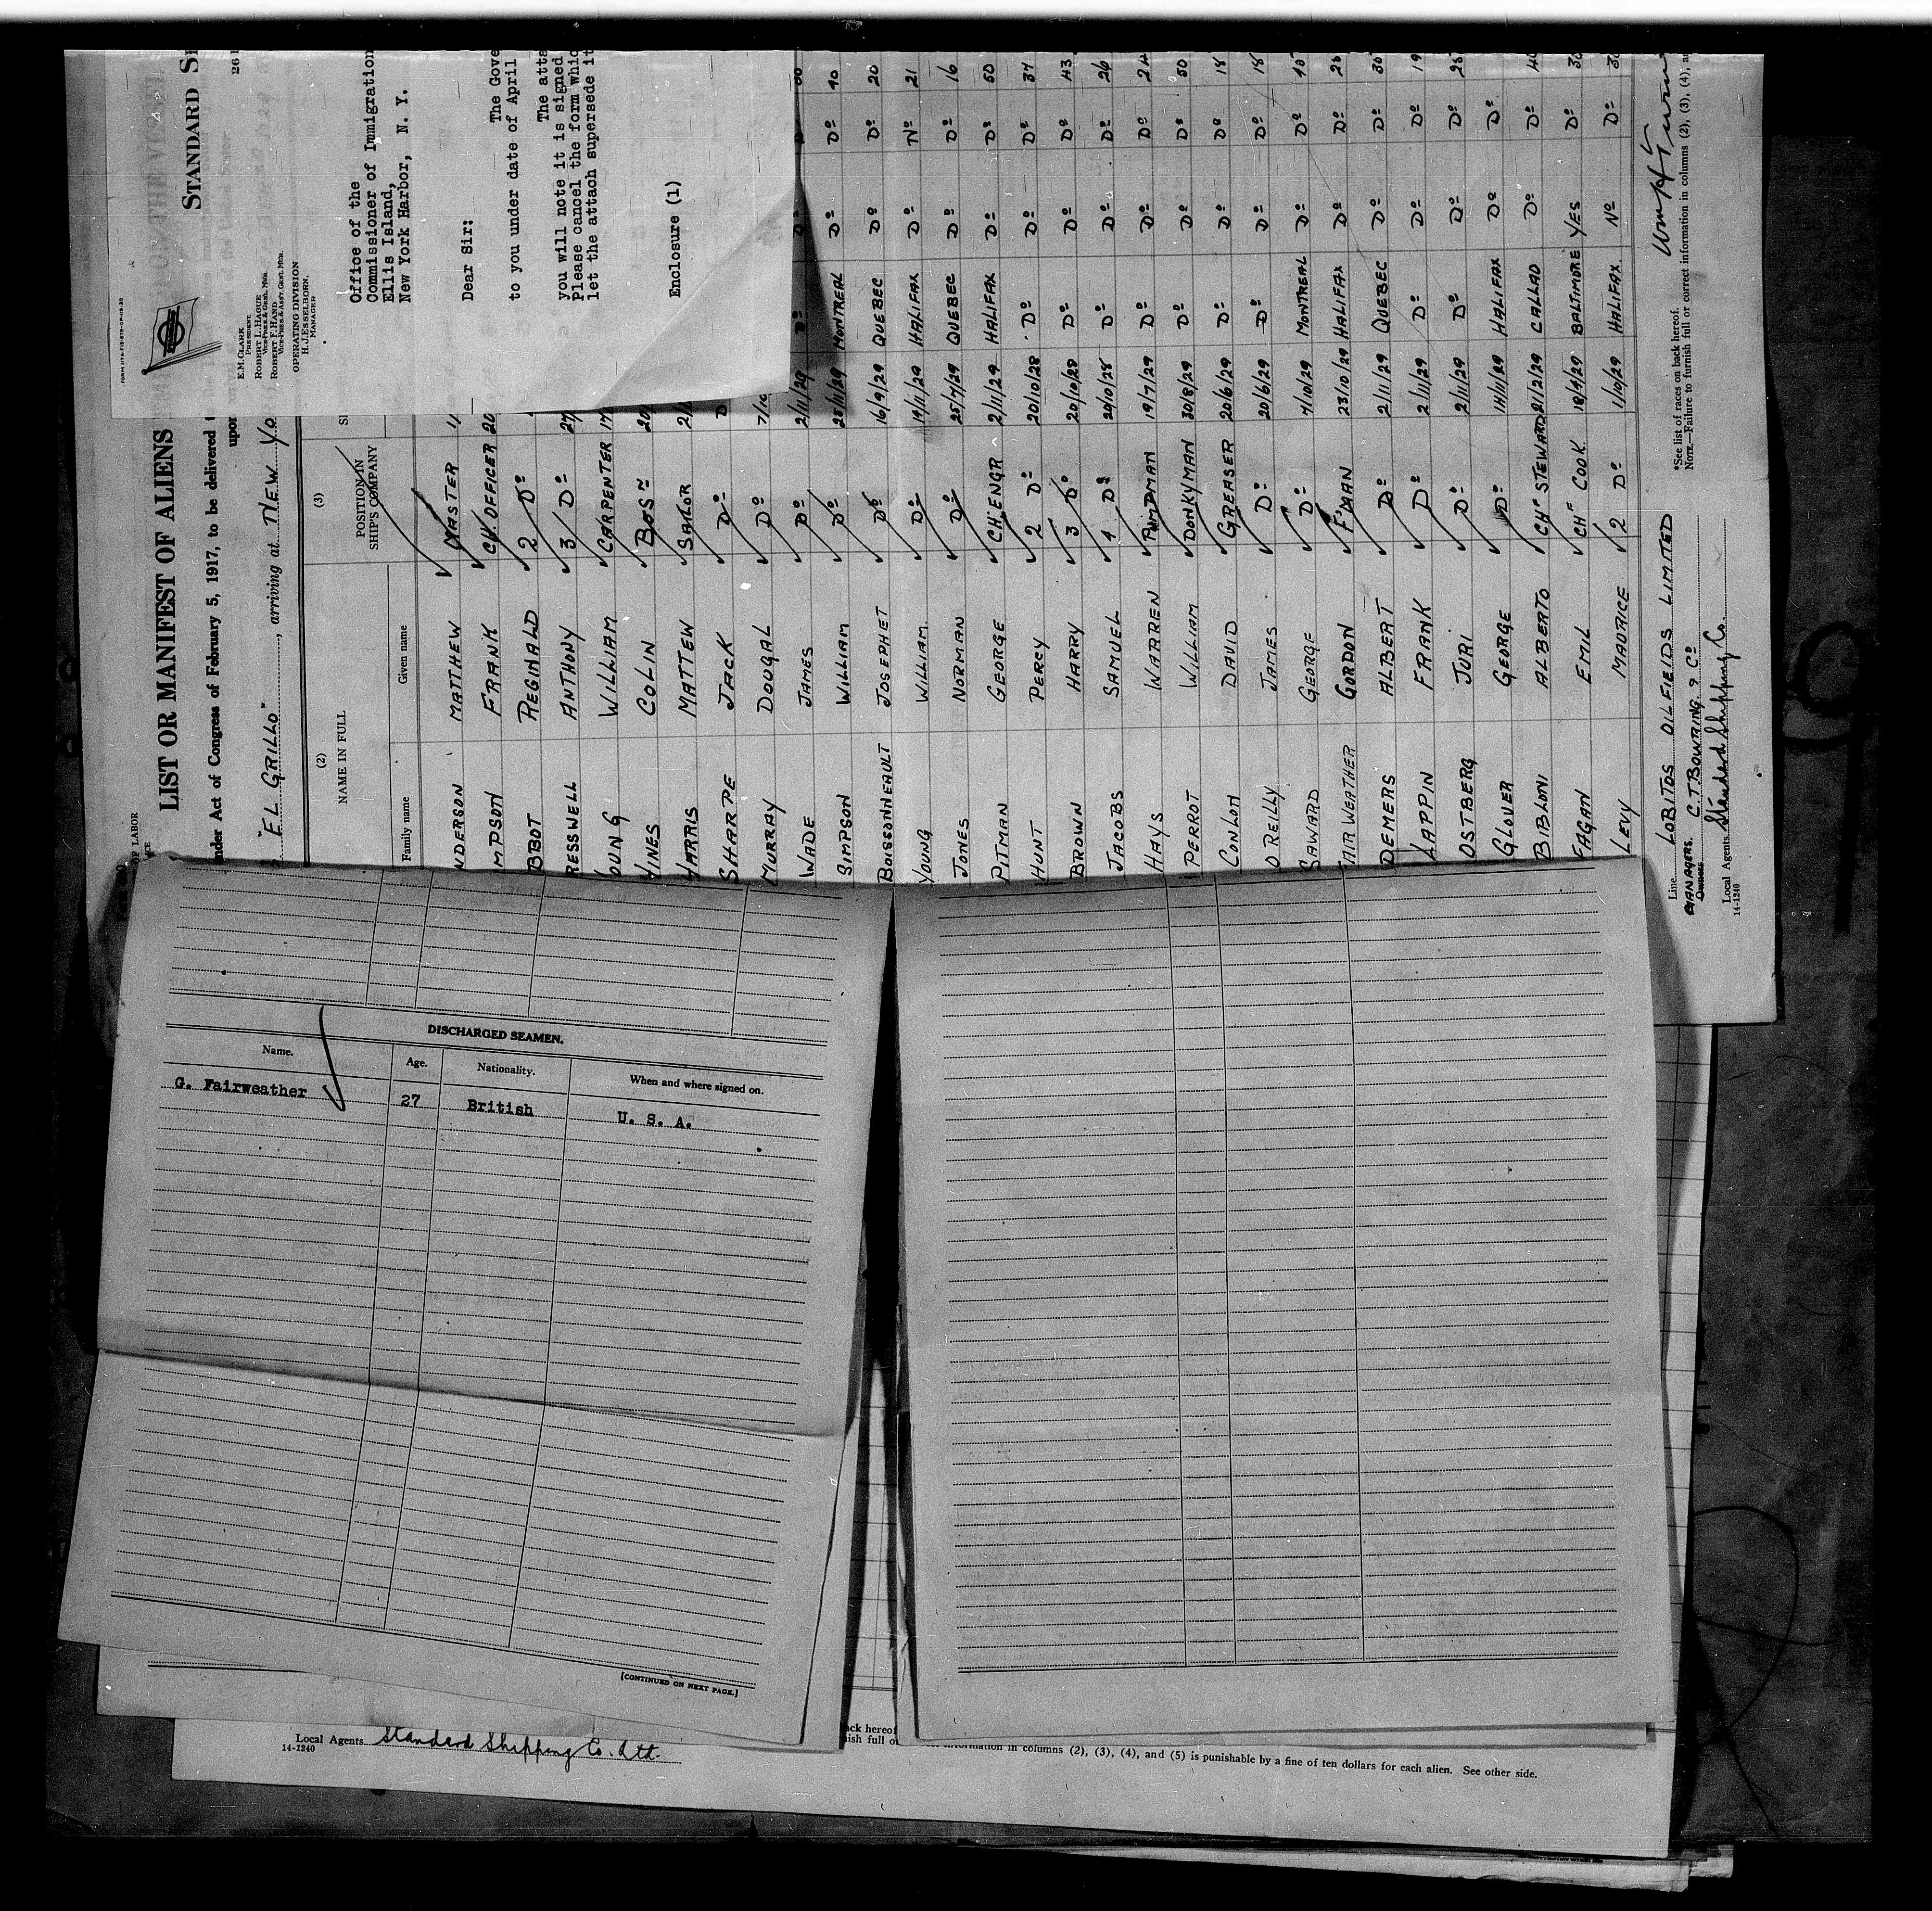 STANDARD
26
E.M.CLARK
PRESIDENT
ROBERT L. HAGUE
VICE-PRES. & GENL. MGR.
ROBERT F. HAND
VICE-PRES. & ASST. GENL. MGR.
OPERATING DIVISION
H.J. ESSELBORN,
MANAGER
Office of the
Commissioner of Immigration
Ellis Island,
New York Harbor, N. Y.
Dear Sir:
The
to you under date of April
The
you will note it is signed
Please cancel the form
let the attach supersede
Enclosure (1)
OF LABOR
LIST OR MANIFEST OF ALIENS
Act of Congress of February 5, 1917, to be delivered
upon
"EL GRILLO", arriving at NEW
(2)
NAME IN FULL
(3)
POSITION IN
SHIP'S COMPANY
Family name
Given name
NDERSON MATTHEW MASTER
MPSON FRANK CH. OFFICER
BBOT REGINALD 2 Dº
RESSWELL ANTHONY 3 Dº
OUNG WILLIAM CARPENTER
HINES COLIN BOSN
HARRIS MATTEW SAILOR
SHARPE JACK Dº
MURRAY DOUGAL Dº
WADE JAMES Dº 2/11/29 Dº Dº
SIMPSON WILLIAM Dº 25/11/29 MONTREAL Dº Dº 40
BOISSONNEAULT JOSEPHET Dº 16/9/29 QUEBEC Dº Dº 20
YOUNG WILLIAM. Dº 19/11/29 HALIFAX Dº Nº 21
JONES NORMAN Dº 25/7/29 QUEBEC Dº Dº 16
PITMAN GEORGE CH. ENGR 2/11/29 HALIFAX Dº Dº 50
HUNT PERCY 2 Dº 20/10/28 Dº Dº Dº 34
BROWN HARRY 3 Dº 20/10/28 Dº Dº Dº 43
JACOBS SAMUEL 4 Dº 20/10/28 Dº Dº Dº 26
HAYS WARREN PUMPMAN 19/7/29 Dº Dº Dº 24
PERROT WILLIAM DONKYMAN 30/8/29 Dº Dº Dº 50
CONLON DAVID GREASER 20/6/29 Dº Dº Dº 18
O REILLY JAMES Dº 20/6/29 Dº Dº Dº 18
SAWARD GEORGE Dº 4/10/29 MONTREAL Dº Dº 40
FAIRWEATHER GORDON F'MAN 23/10/29 HALIFAX Dº Dº 28
DEMERS ALBERT Dº 2/11/29 QUEBEC Dº Dº 30
LAPPIN FRANK Dº 2/11/29 Dº Dº Dº 19
OSTBERG JURI Dº 2/11/29 Dº Dº Dº 28
GLOVER GEORGE Dº 14/11/29 HALIFAX Dº Dº
BIBLONI ALBERTO CHF STEWARD 21/2/29 CALLAO Dº Dº 40
FAGAN EMIL CHF COOK. 18/4/29 BALTIMORE YES Dº
LEVY MAURICE 2 Dº 1/10/29 HALIFAX. Nº Dº
Line LOBITOS OILFIELDS LIMITED
MANAGERS. C.T. BOWRING & Cº
Owners
Local Agents Standard Shipping Co.
14-1240
*See list of races on back hereof.
NOTE.—Failure to furnish full or correct information in columns (2), (3), (4),
DISCHARGED SEAMEN.
Name. Age. Nationality. When and where signed on.
G. Fairweather 27 British U. S. A.
[CONTINUED ON NEXT PAGE.]
Local Agents Standard Shipping Co. Ltd.
14-1240
back hereof
full information in columns (2), (3), (4), and (5) is punishable by a fine of ten dollars for each alien. See other side.